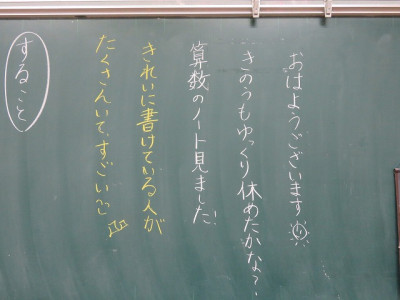 おはようございます
きのうもゆっくり休めたかな?
算数のノート見ました!
きれいに書けている人が
たくさんいて、すごい!!
すること